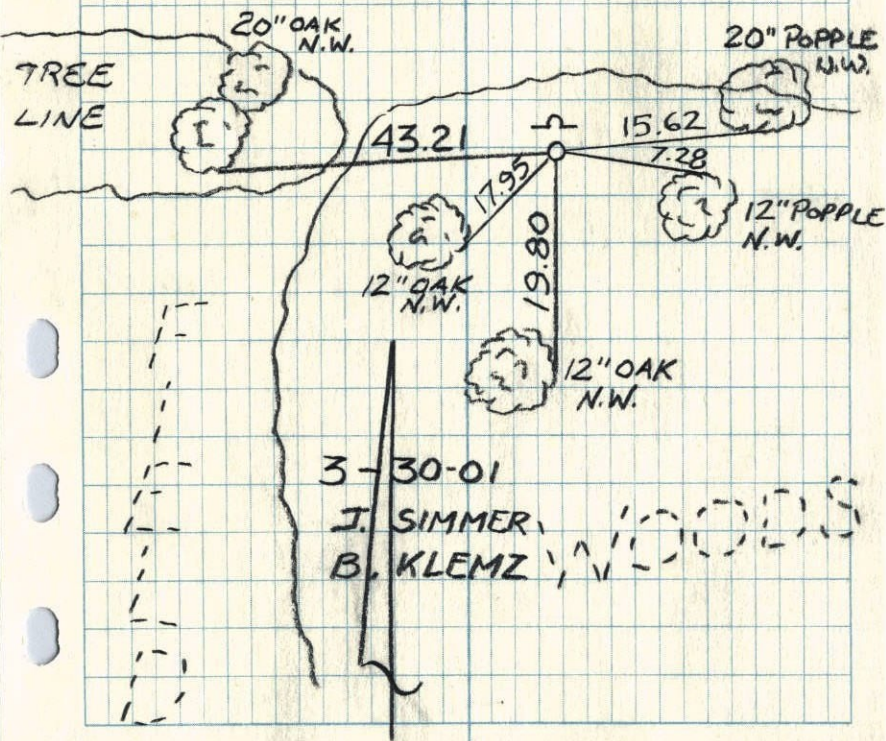 20" OAK
N.W.
20" POPPLE
N.W.
TREE
LINE
43.21
15.62
7.28
17.95
12" POPPLE
N.W.
19.80
12" OAK
N.W.
12" OAK
N.W.
3-30-01
J. SIMMER
B. KLEMZ
WOODS
FIELD